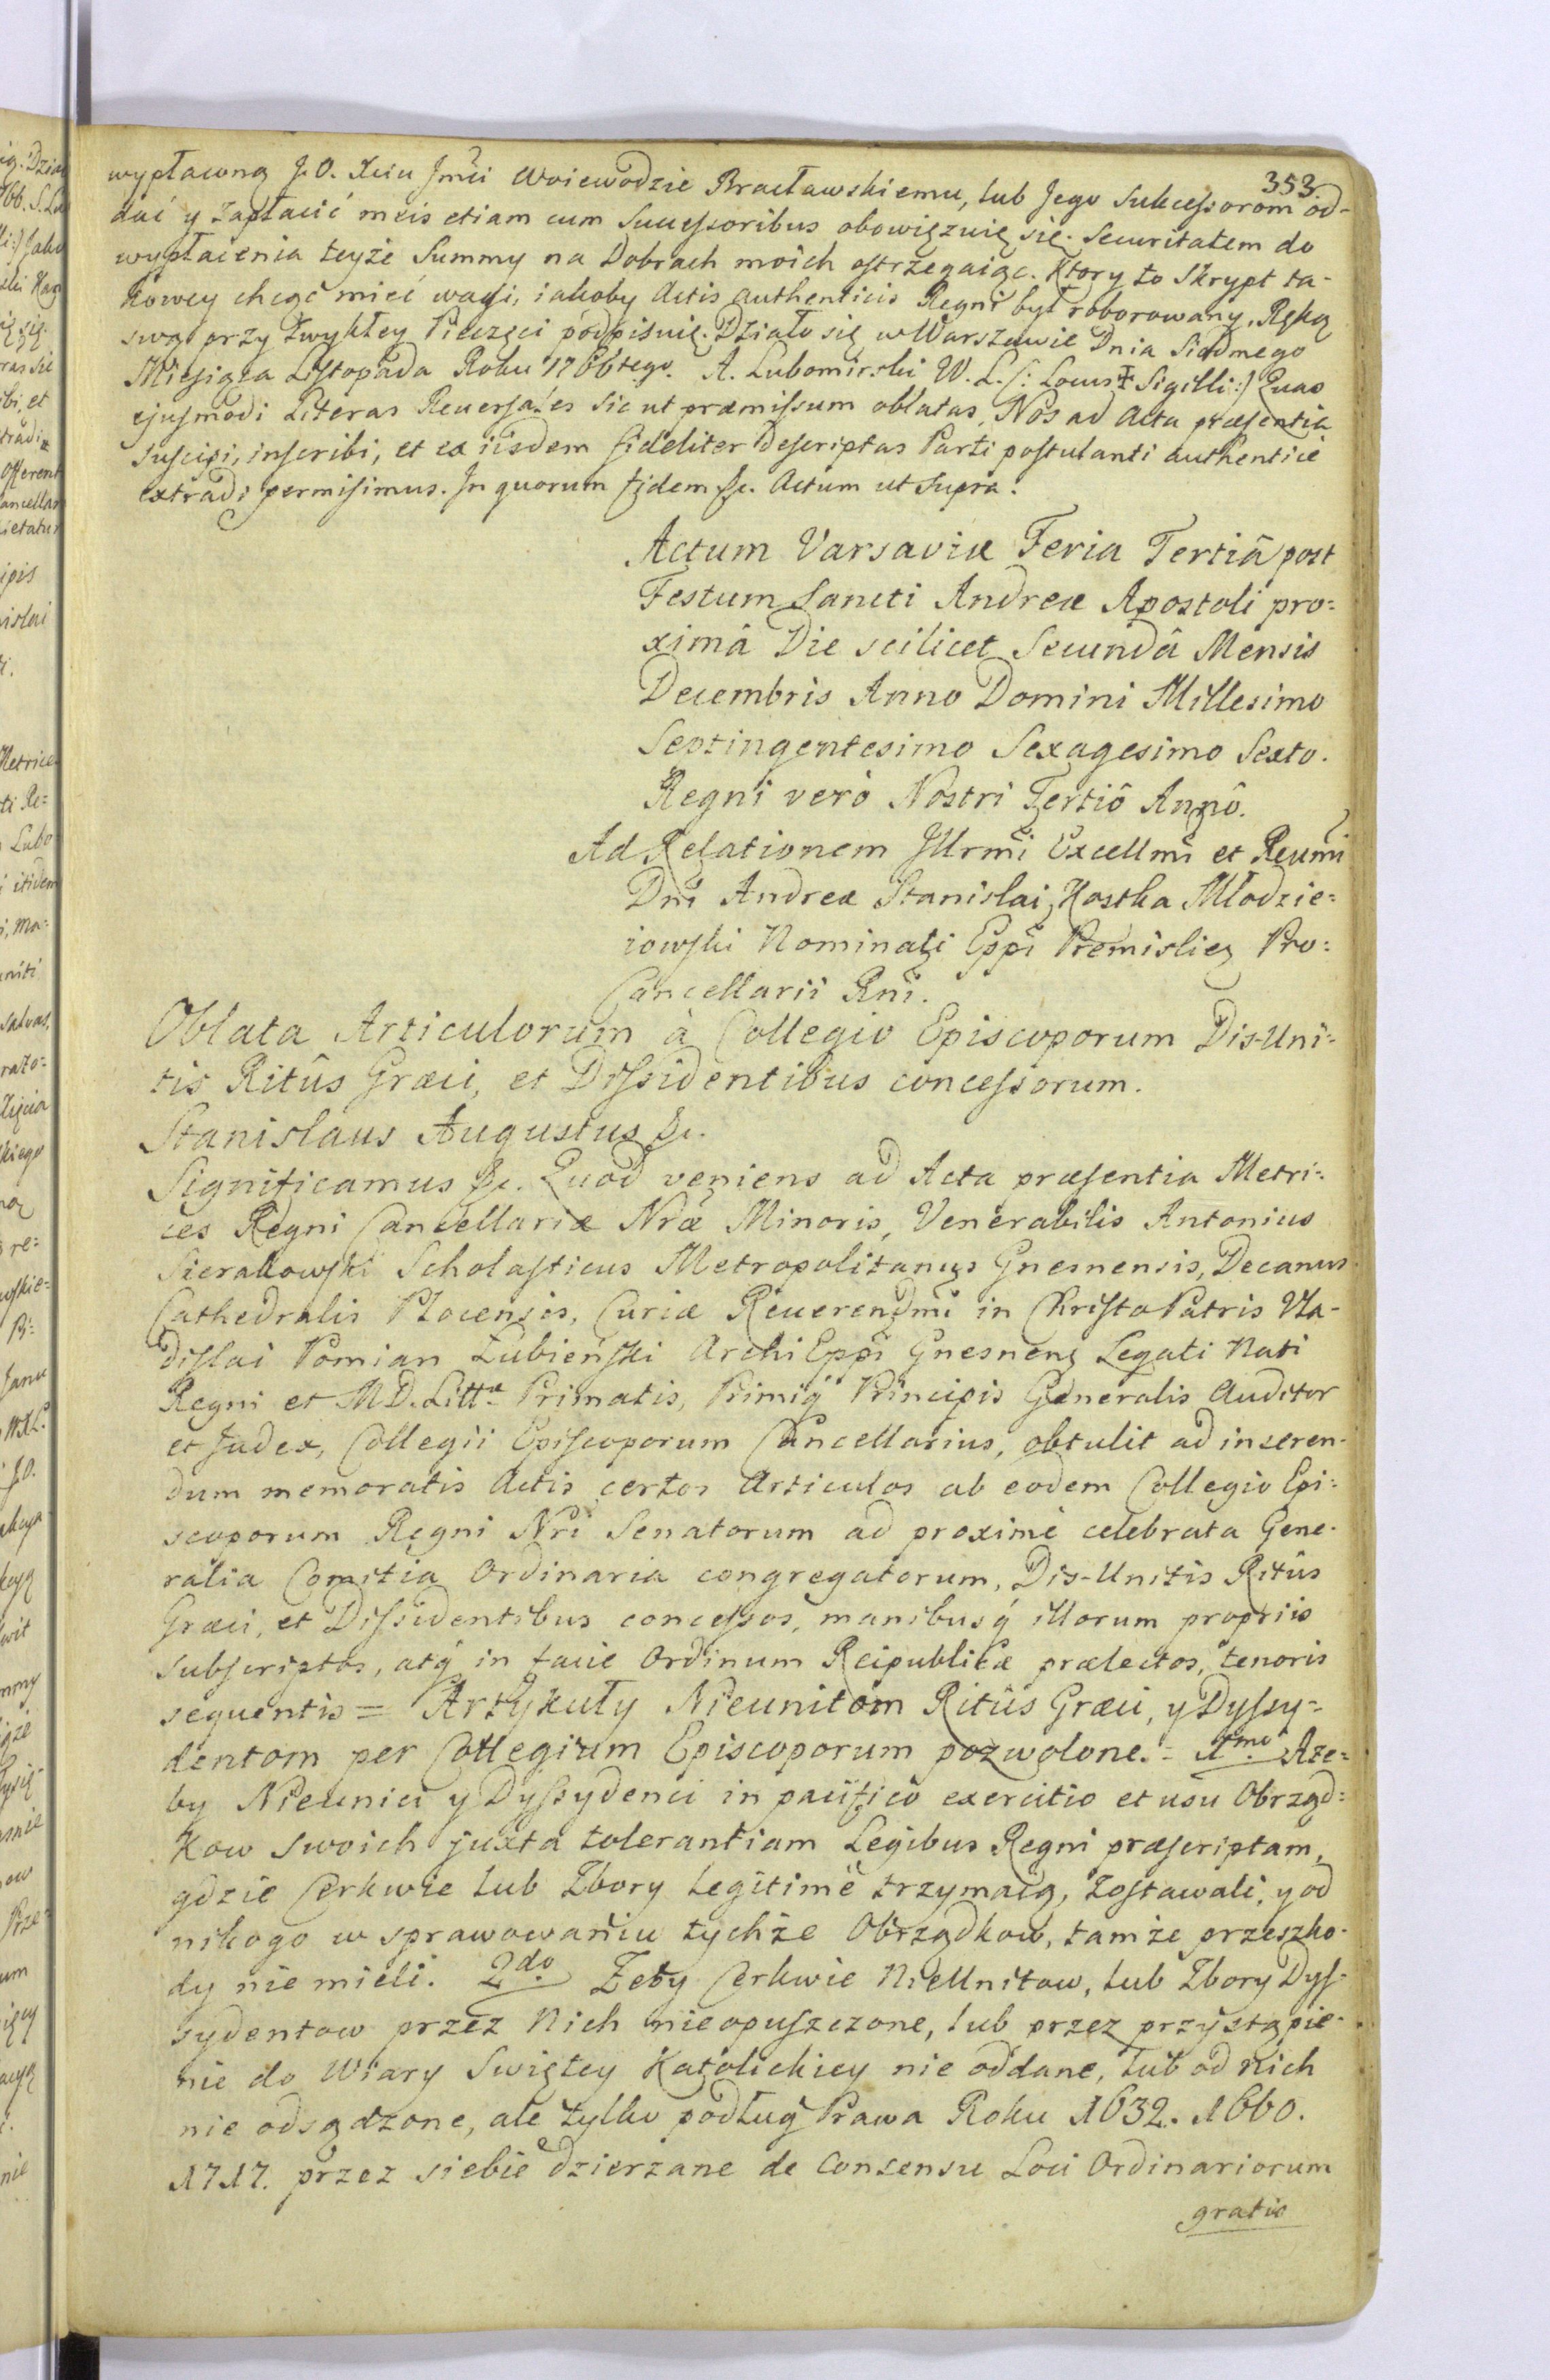 353.
wypłacona J. O. Xciu Jmći Woiewodzie Bracławskiemu, lub Jego Sukcessorom od-
dać y zapłacić meis etiam cum Successoribus obowięzuię się. Securitatem do
wypłacenia teyże Summy na Dobrach moich ostrzegaiąc. Ktory to Skrypt ta-
kowey chcąc mieć wagi, iakoby Actis authenticis Regni był roborowany, Ręką
swą przy zwykłey Pieczęci podpisuię. Działo się w Warszawie Dnia Siodmego
Miesiąca Listopada Roku 1766tego. A. Lubomirski W. L. /: Locus ‡ Sigilli :/ Quas
ejusmodi Literas Reversales sicut præmissum oblatas, Nos ad Acta præsentia
suscipi, inscribi, et ex iisdem fideliter descriptas Parti postulanti authentice
extradi permisimus. In quorum fidem &c. Actum ut Supra.
Actum Varsaviæ Feria Tertiâ post
Festum Sancti Andreæ Apostoli pro=
ximâ Die scilicet Secundâ Mensis
Decembris Anno Domini Millesimo
Septingentesimo Sexagesimo Sexto.
Regni verò Nostri Tertiô Annô.
Ad Relationem Illrmi Excellmi et Reumi
Dni Andreæ Stanislai Kostka Młodzie=
iowski Nominati Eppi Premislien Pro=
Cancellarii Rni.
Oblata Articulorum à Collegio Episcoporum Dis-Uni=
tis Ritûs Græci, et Dissidentibus concessorum.
Stanislaus Augustus &c.
Significamus &c. Quod veniens ad Acta præsentia Metri=
ces Regni Cancellariæ Nræ Minoris, Venerabilis Antonius
Sierakowski Scholasticus Metropolitanus Gnesnensis, Decanus
Cathedralis Plocensis, Curiæ Reverendmi in Christo Patris Vla-
dislai Pomian Łubieński Archi Eppi Gnesnen Legati Nati
Regni et M. D. Littæ Primatis, Primiq́ Principis Generalis Auditor
et Judex, Collegii Episcoporum Cancellarius, obtulit ad inseren-
dum memoratis Actis certos Articulos ab eodem Collegio Epi=
scoporum Regni Nri Senatorum ad proximè celebrata Gene-
ralia Comitia Ordinaria congregatorum, Dis-Unitis Ritûs
Græci, et Dissidentibus concessos, manibusq́ illorum propriis
subscriptos, atq́ in facie Ordinum Reipublicæ prælectos, tenoris
sequentis = Artykuły Nieunitom Ritûs Græci, y Dyssy=
dentom per Collegium Episcoporum pozwolone. = 1mo Aże=
by Nieunici y Dyssydenci in pacifico exercitio et usu Obrząd=
kow swoich juxta tolerantiam Legibus Regni præscriptam,
gdzie Cerkwie lub Zbory legitimè trzymaią, zostawali, y od
nikogo w sprawowaniu tychże Obrządkow, tamże przeszko-
dy nie mieli. 2do Żeby Cerkwie NieUnitow, lub Zbory Dys-
sydentow przez Nich nieopuszczone, lub przez przystąpie-
nie do Wiary Swiętey Katolickiey nie oddane, lub od nich
nie odsądzone, ale tylko podług Prawa Roku 1632. 1660.
1717. przez siebie dzierzane de Consensu Loci Ordinariorum
gratis